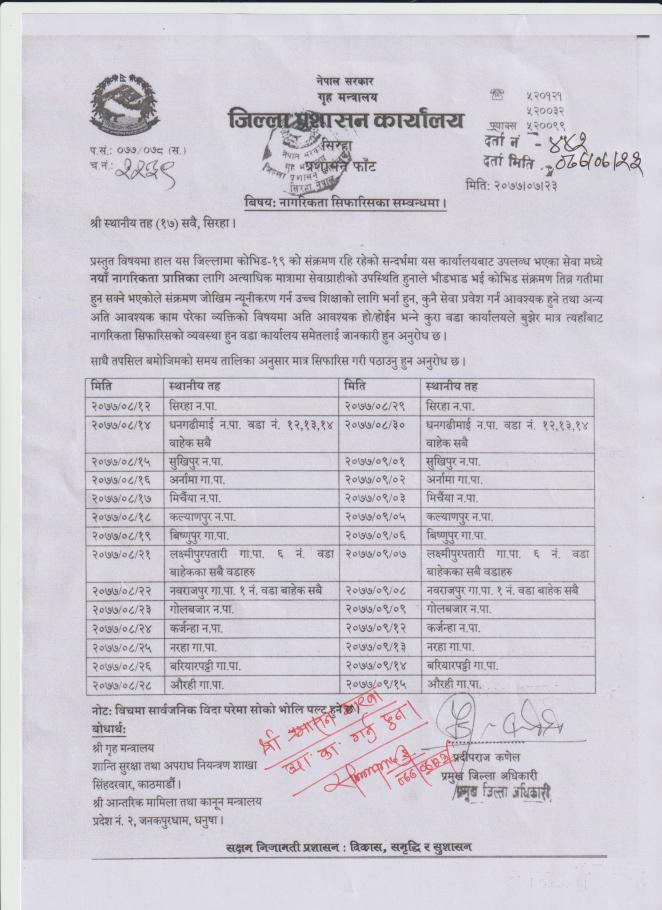 नेपाल सरकार
गृह मन्त्रालय
जिल्ला प्रशासन कार्यालय
सिरहा
प्रशासन फाँट
५२०१२१
५२००३२
फ्याक्स ५२००९९
दर्ता नं - ४४२
दर्ता मिति
प.सं.: ०७७/०७८ (स.)
च.नं.: २२३९
मिति: २०७७/०७/२३
विषय: नागरिकता सिफारिसका सम्बन्धमा।
श्री स्थानीय तह (१७) सवै, सिरहा।
प्रस्तुत विषयमा हाल यस जिल्लामा कोभिड-१९ को संक्रमण रहि रहेको सन्दर्भमा यस कार्यालयबाट उपलब्ध भएका सेवा मध्ये
नयाँ नागरिकता प्राप्तिका लागि अत्याधिक मात्रामा सेवाग्राहीको उपस्थिति हुनाले भीडभाड भई कोभिड संक्रमण तिव्र गतीमा
हुन सक्ने भएकोले संक्रमण जोखिम न्यूनीकरण गर्न उच्च शिक्षाको लागि भर्ना हुन, कुनै सेवा प्रवेश गर्न आवश्यक हुने तथा अन्य
अति आवश्यक काम परेका व्यक्तिको विषयमा अति आवश्यक हो/होईन भन्ने कुरा वडा कार्यालयले बुझेर मात्र त्यहाँबाट
नागरिकता सिफारिसको व्यवस्था हुन वडा कार्यालय समेतलाई जानकारी हुन अनुरोध छ।
साथै तपसिल बमोजिमको समय तालिका अनुसार मात्र सिफारिस गरी पठाउनु हुन अनुरोध छ।
मिति स्थानीय तह मिति स्थानीय तह
२०७७/०८/१२ सिरहा न.पा. २०७७/०८/२९ सिरहा न.पा.
२०७७/०८/१४ धनगढीमाई न.पा. वडा नं. १२,१३,१४ २०७७/०८/३० धनगढीमाई न.पा. वडा नं. १२,१३,१४
वाहेक सबै वाहेक सबै
२०७७/०८/१५ सुखिपुर न.पा. २०७७/०९/०१ सुखिपुर न.पा.
२०७७/०८/१६ अर्नामा गा.पा. २०७७/०९/०२ अर्नामा गा.पा.
२०७७/०८/१७ मिर्चैया न.पा. २०७७/०९/०३ मिर्चैया न.पा.
२०७७/०८/१८ कल्याणपुर न.पा. २०७७/०९/०५ कल्याणपुर न.पा.
२०७७/०८/१९ बिष्णुपुर गा.पा. २०७७/०९/०६ बिष्णुपुर गा.पा.
२०७७/०८/२१ लक्ष्मीपुरपतारी गा.पा. ६ नं. वडा २०७७/०९/०७ लक्ष्मीपुरपतारी गा.पा. ६ नं. वडा
बाहेकका सबै वडाहरु बाहेकका सबै वडाहरु
२०७७/०८/२२ नवराजपुर गा.पा. १ नं. वडा बाहेक सबै २०७७/०९/०८ नवराजपुर गा.पा. १ नं. वडा बाहेक सबै
२०७७/०८/२३ गोलबजार न.पा. २०७७/०९/०९ गोलबजार न.पा.
२०७७/०८/२४ कर्जन्हा न.पा. २०७७/०९/१२ कर्जन्हा न.पा.
२०७७/०८/२५ नरहा गा.पा. २०७७/०९/१३ नरहा गा.पा.
२०७७/०८/२६ बरियारपट्टी गा.पा. २०७७/०९/१४ बरियारपट्टी गा.पा.
२०७७/०८/२८ औरही गा.पा. २०७७/०९/१५ औरही गा.पा.
नोट: विचमा सार्वजनिक विदा परेमा सोको भोलि पल्ट हुनेछ।
बोधार्थ:
श्री गृह मन्त्रालय
शान्ति सुरक्षा तथा अपराध नियन्त्रण शाखा
सिंहदरवार, काठमाडौं।
श्री आन्तरिक मामिला तथा कानून मन्त्रालय
प्रदेश नं. २, जनकपुरधाम, धनुषा।
श्री प्रशासन शाखा
गर्नु हुन।
प्रदीपराज कणेल
प्रमुख जिल्ला अधिकारी
प्रमुख जिल्ला अधिकारी
सक्षम निजामती प्रशासन : विकास, समृद्धि र सुशासन